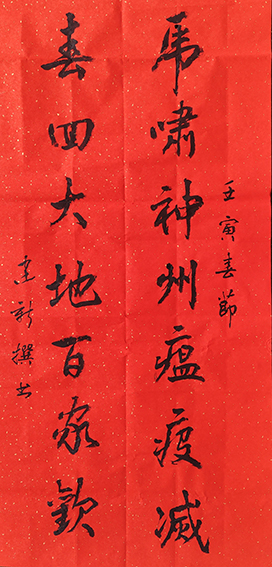 壬寅春節
虎嘯神州瘟疫滅
春回大地百家歡
建新撰书